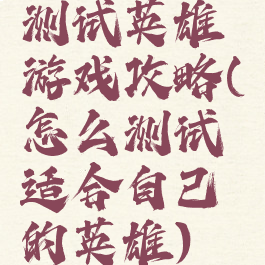 测试英雄
游戏攻略(
怎么测试
适合自己
的英雄)